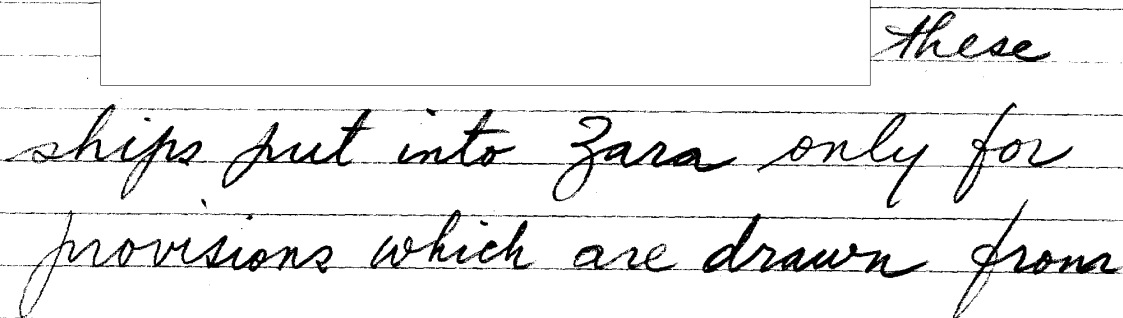 these
ships put into Zara only for
provisions which are drawn from